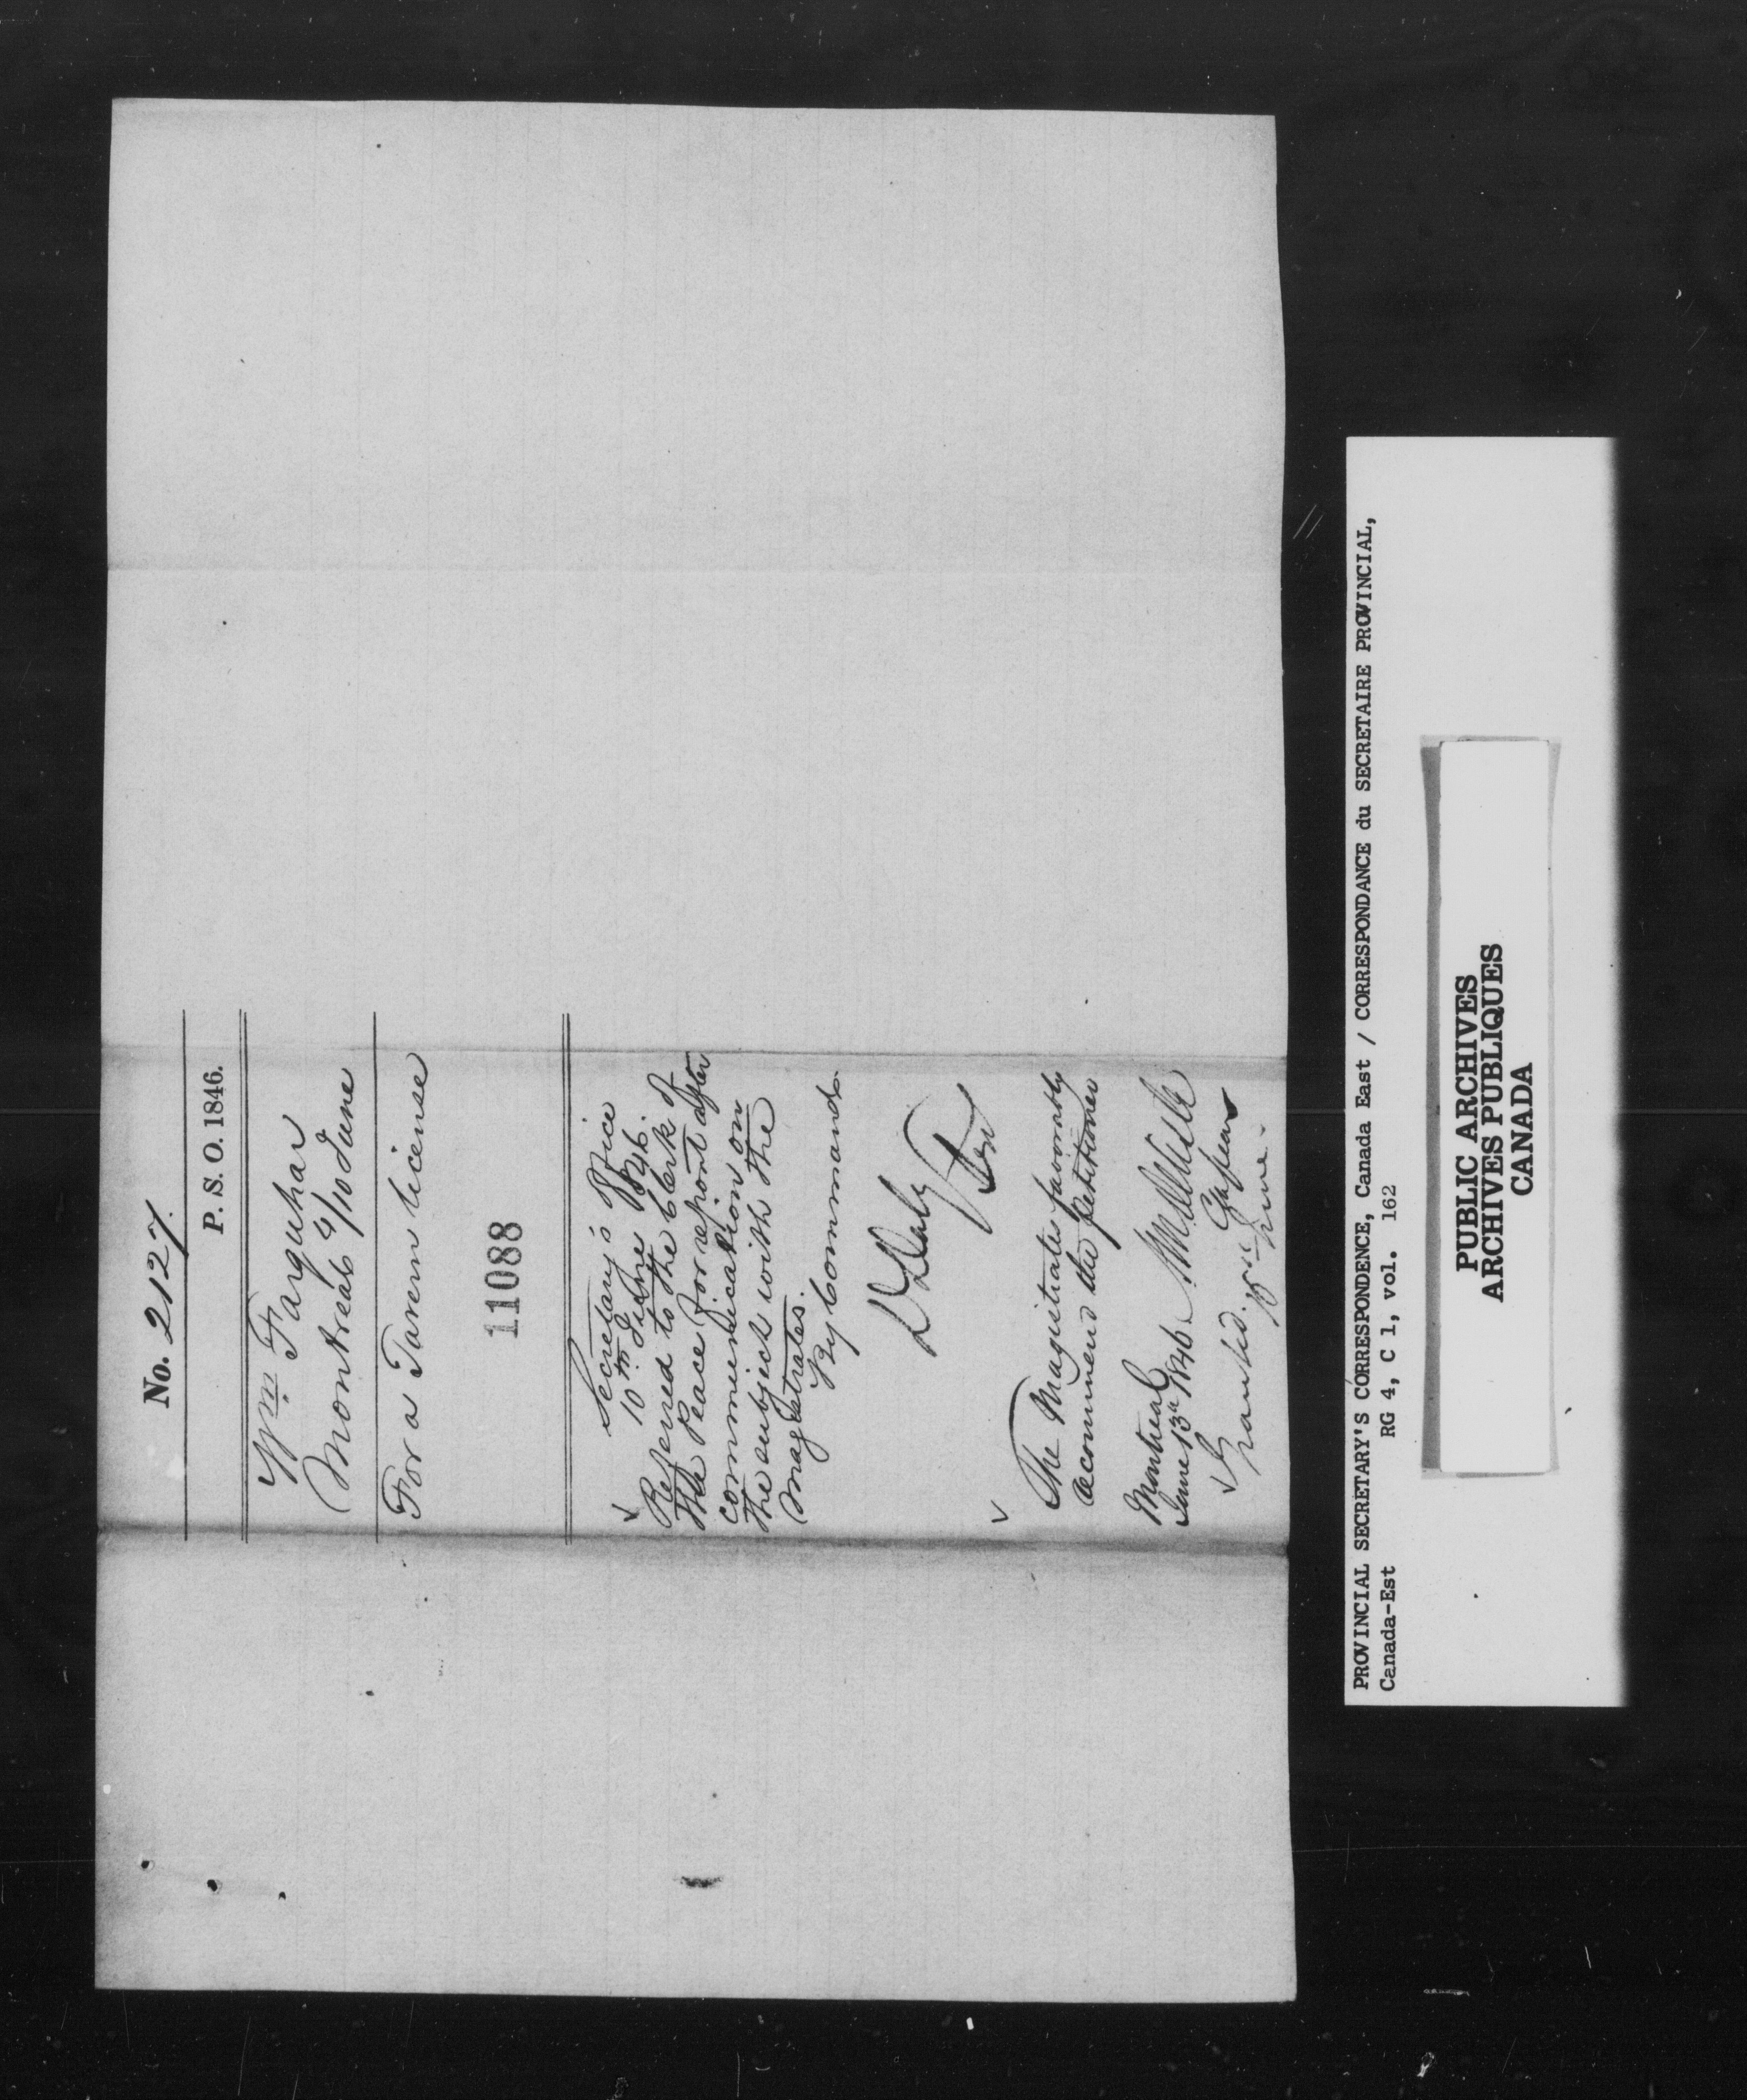 No. 2127.
P. S. O. 1846.
Wm. Farquhar
Montreal 9/10 June
For a Tavern license
11088
Secretary's Office
10th June 1846.
Referred to the Clerk of
the Peace for report after
communication on
the subject with the
Magistrates.
By Command
D Daly
Sec
The Magistrates favorably
recommend the petitioner
Montreal
June 13th 1846
Granted.
June.
PROVINCIAL SECRETARY'S CORRESPONDENCE, Canada East / CORRESPONDANCE du SECRETAIRE PROVINCIAL,
Canada-Est RG 4, C 1, vol. 162
PUBLIC ARCHIVES
ARCHIVES PUBLIQUES
CANADA